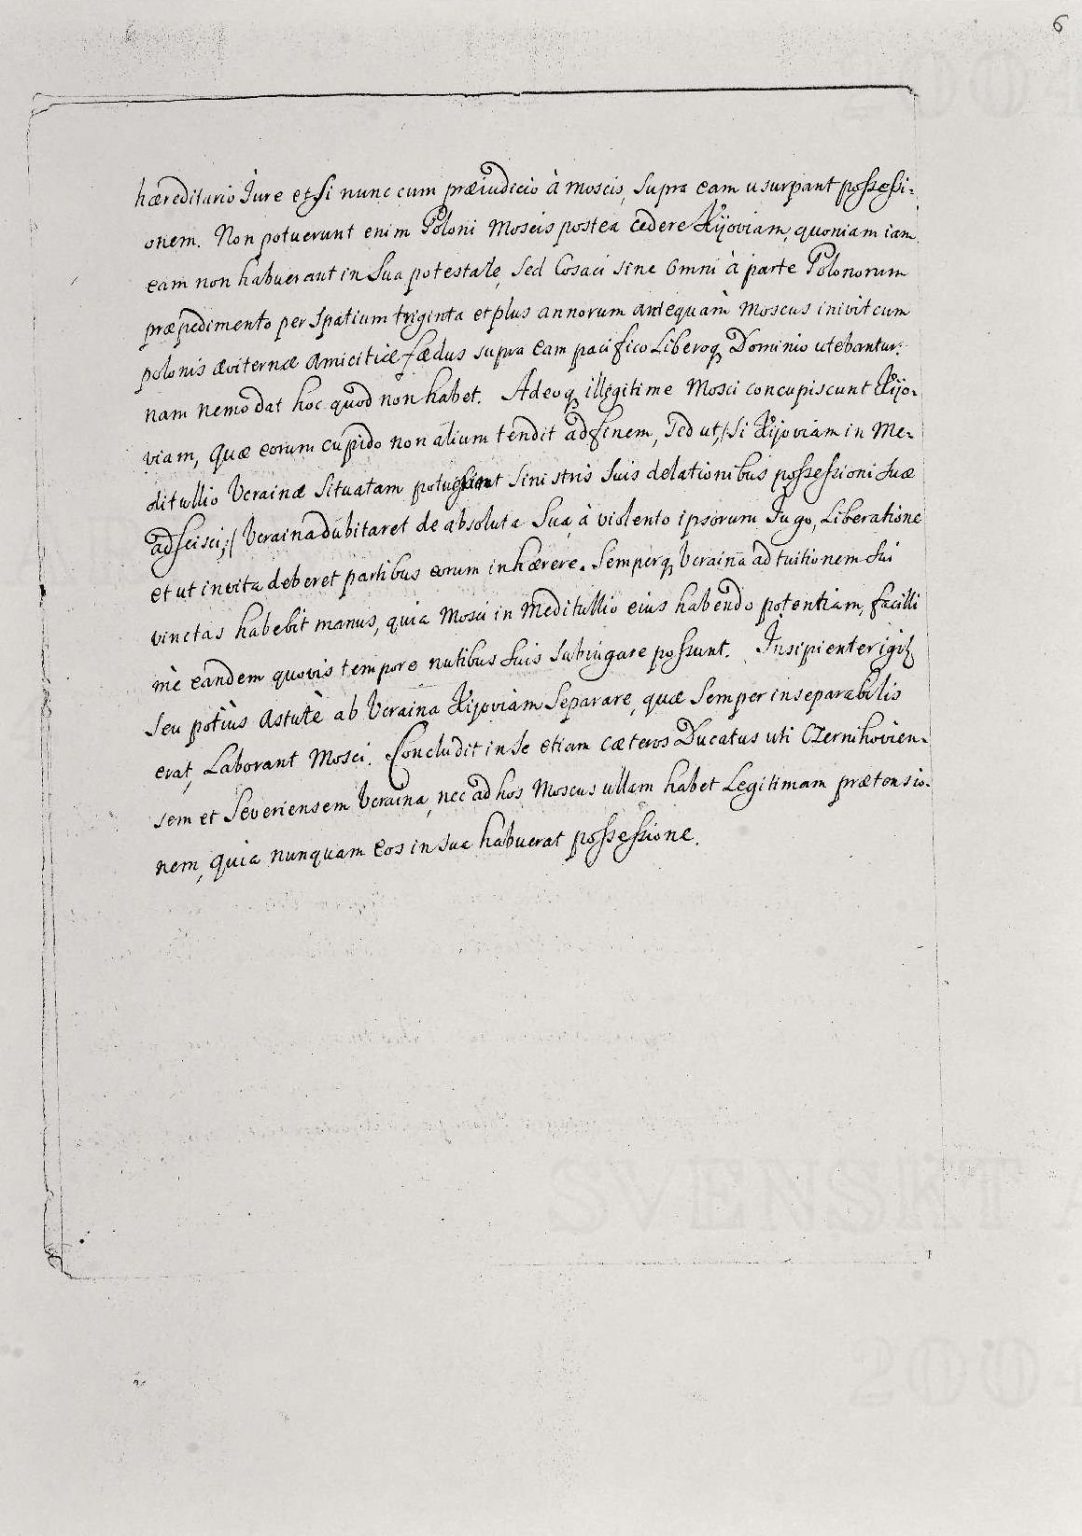 6
hæreditario Jure etsi nunc cum præiudicio à moscis, supra eam usurpant possessi-
onem. Non potuerunt enim Poloni Moscis postea cedere Kijoviam, quoniam iam
eam non habuerant in sua potestate, sed Cosaci sine omni à parte Polonorum
præpedimento per spatium triginta et plus annorum antequàm Moscus inivit cum
polonis æviternæ amicitiæ fædus supra eam pacifico Liberoq Dominio utebantur:
nam nemo dat hoc quod non habet. Adeoq illégitime Mosci concupiscunt Kijo-
viam, quæ eorum cupido non alium tendit ad finem, sed ut, /si Kijoviam in Me-
ditullio Ucrainæ situatam sinistris suis delationibus possessioni suæ
adscisci;/ Ucraina dubitaret de absoluta sua à violento ipsorum Jugo, Liberatione
et ut invita deberet partibus eorum inhærere. Semperq Ucraina ad tuitionem sui
vinctas habebit manus, quia Mosci in meditullio eius habendo potentiam, facilli
mè eandem quovis tempore nutibus suis subiugare possunt. Insipienter igit
seu potiùs astutè ab Ucraina Kijoviam separare, quæ semper inseparabilis
erat, Laborant Mosci. Concludit in se etiam cæteros Ducatus uti Czernihovien-
sem et Severiensem Ucraina, nec ad hos Moscus ullam habet Legitimam prætensio-
nem, quia nunquam eos in sua habuerat possessione.
SVENSKT A
2004